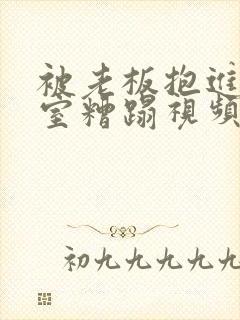 被老板抱进
室糟蹋視頻
初九九九九九